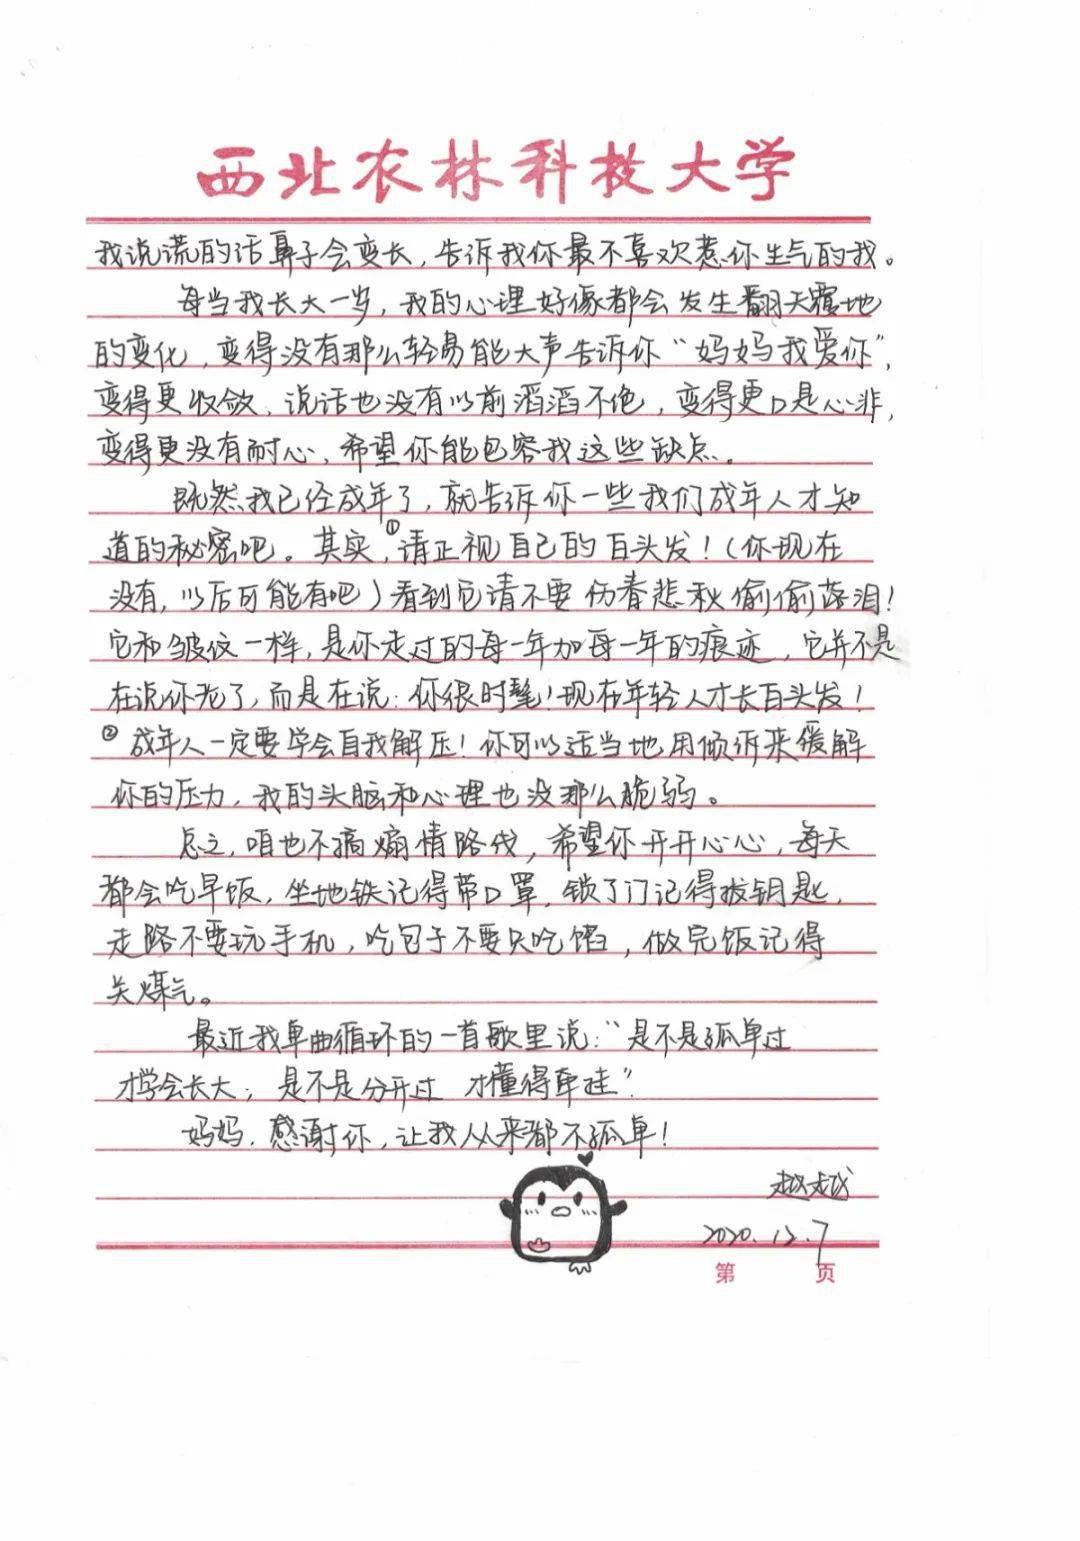 西北农林科技大学
我说谎的话鼻子会变长，告诉我你最不喜欢惹你生气的我。
每当我长大一岁，我的心理好像都会发生翻天覆地
的变化，变得没有那么轻易能大声告诉你“妈妈我爱你”，
变得更收敛、说话也没有以前滔滔不绝，变得更口是心非，
变得更没有耐心，希望你能包容我这些缺点。
既然我已经成年了，就告诉你一些我们成年人才知
道的秘密吧。其实，①请正视自己的白头发！（你现在
没有，以后可能有吧）看到它请不要伤春悲秋偷偷落泪！
它和皱纹一样，是你走过的每一年加每一年的痕迹，它并不是
在说你老了，而是在说：你很时髦！现在年轻人才长白头发！
②成年人一定要学会自我解压！你可以适当地用倾诉来缓解
你的压力，我的头脑和心理也没那么脆弱。
总之，咱也不搞煽情路线，希望你开开心心，每天
都会吃早饭，坐地铁记得带口罩，锁了门记得拔钥匙，
走路不要玩手机，吃包子不要只吃馅，做完饭记得
关煤气。
最近我单曲循环的一首歌里说：“是不是孤单过
才学会长大；是不是分开过 才懂得牵挂”
妈妈，感谢你，让我从来都不孤单！
越越
2020.12.7
第 页